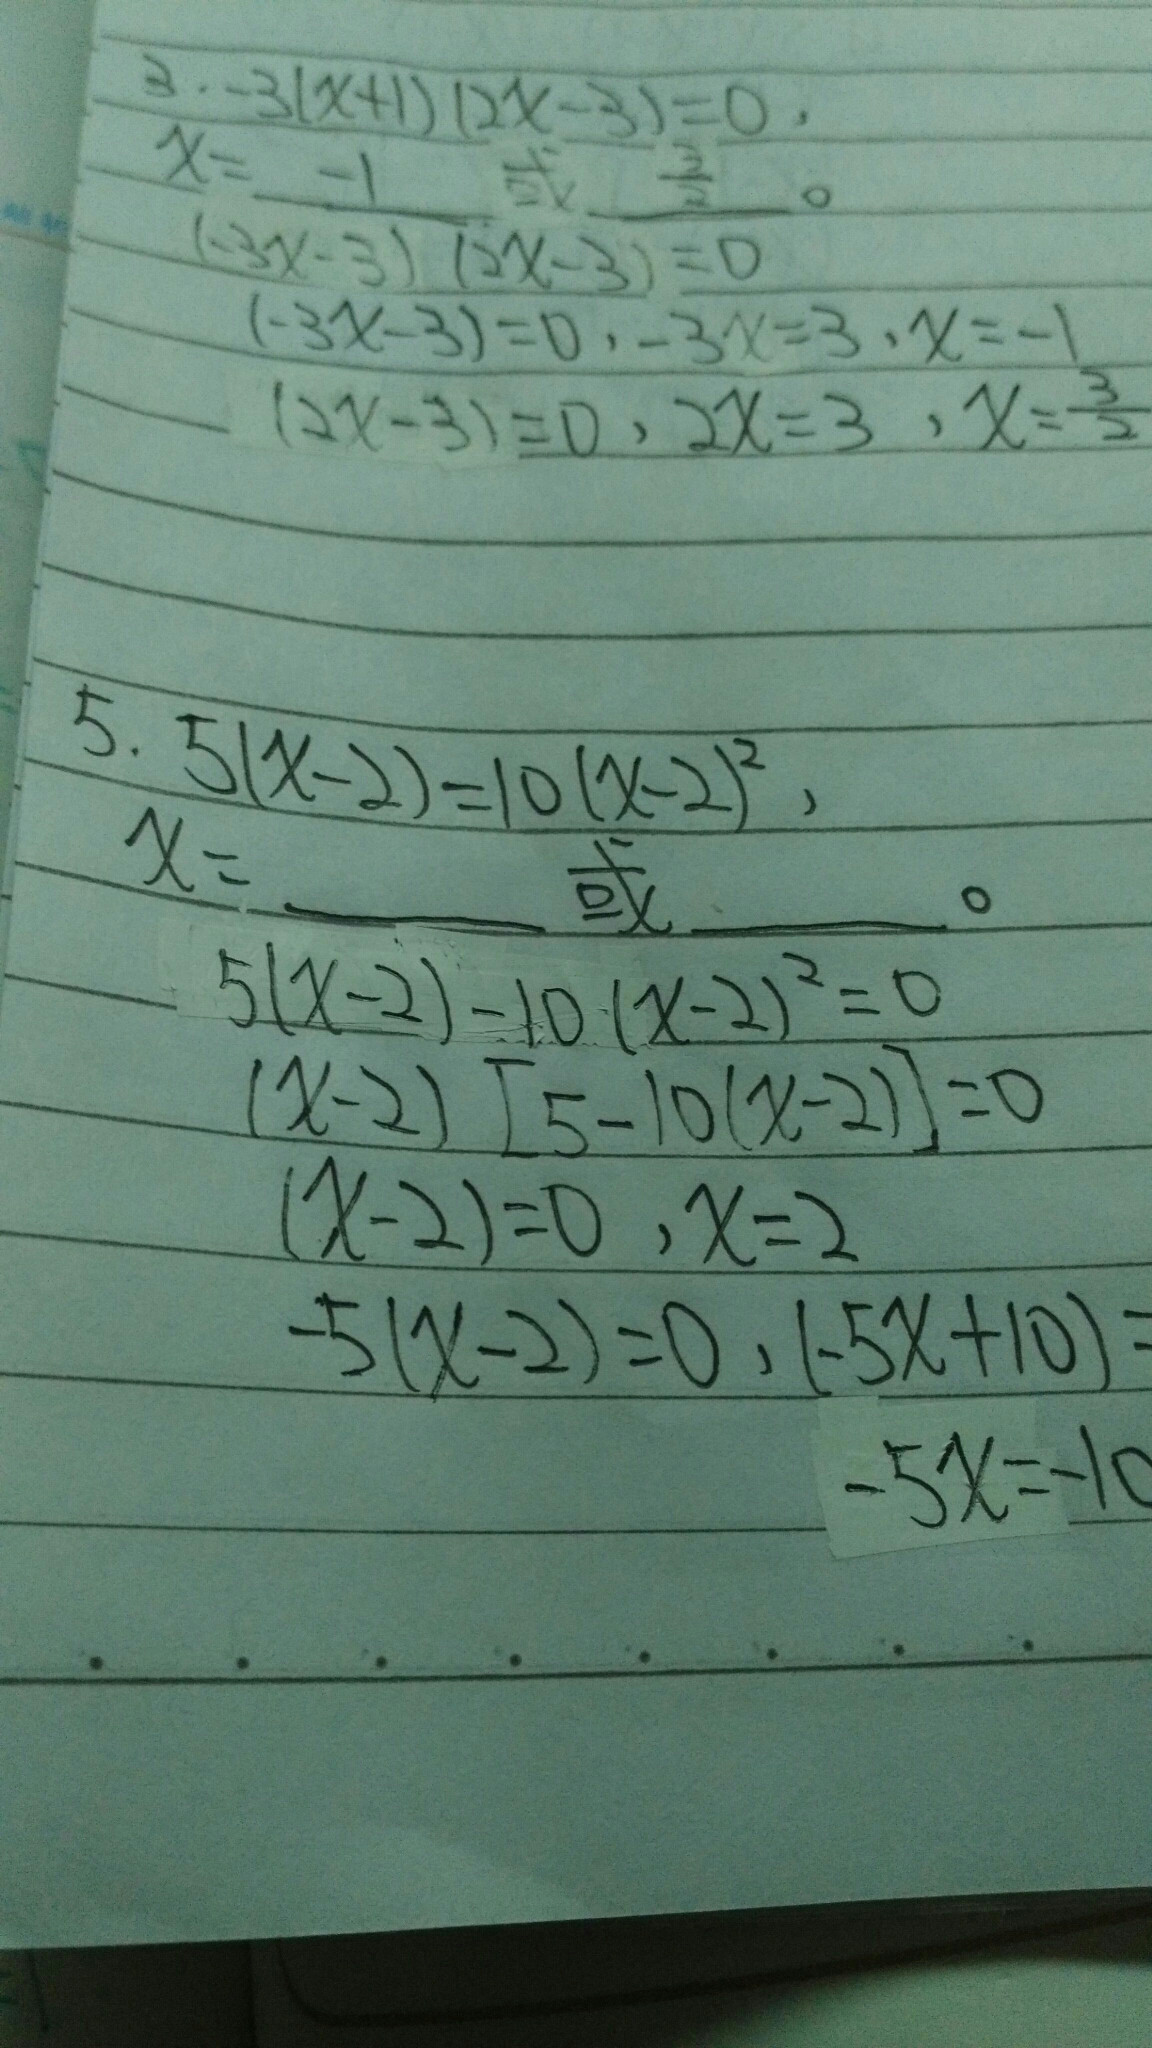 3. -3(x+1)(2x-3)=0,
x= -1 或 3/2 。
(-3x-3)(2x-3)=0
(-3x-3)=0,-3x=3,x=-1
(2x-3)=0,2x=3,x=3/2
5. 5(x-2)=10(x-2)²,
x=______或______。
5(x-2)-10(x-2)²=0
(x-2)[5-10(x-2)]=0
(x-2)=0,x=2
-5(x-2)=0,(-5x+10)=
-5x=-10